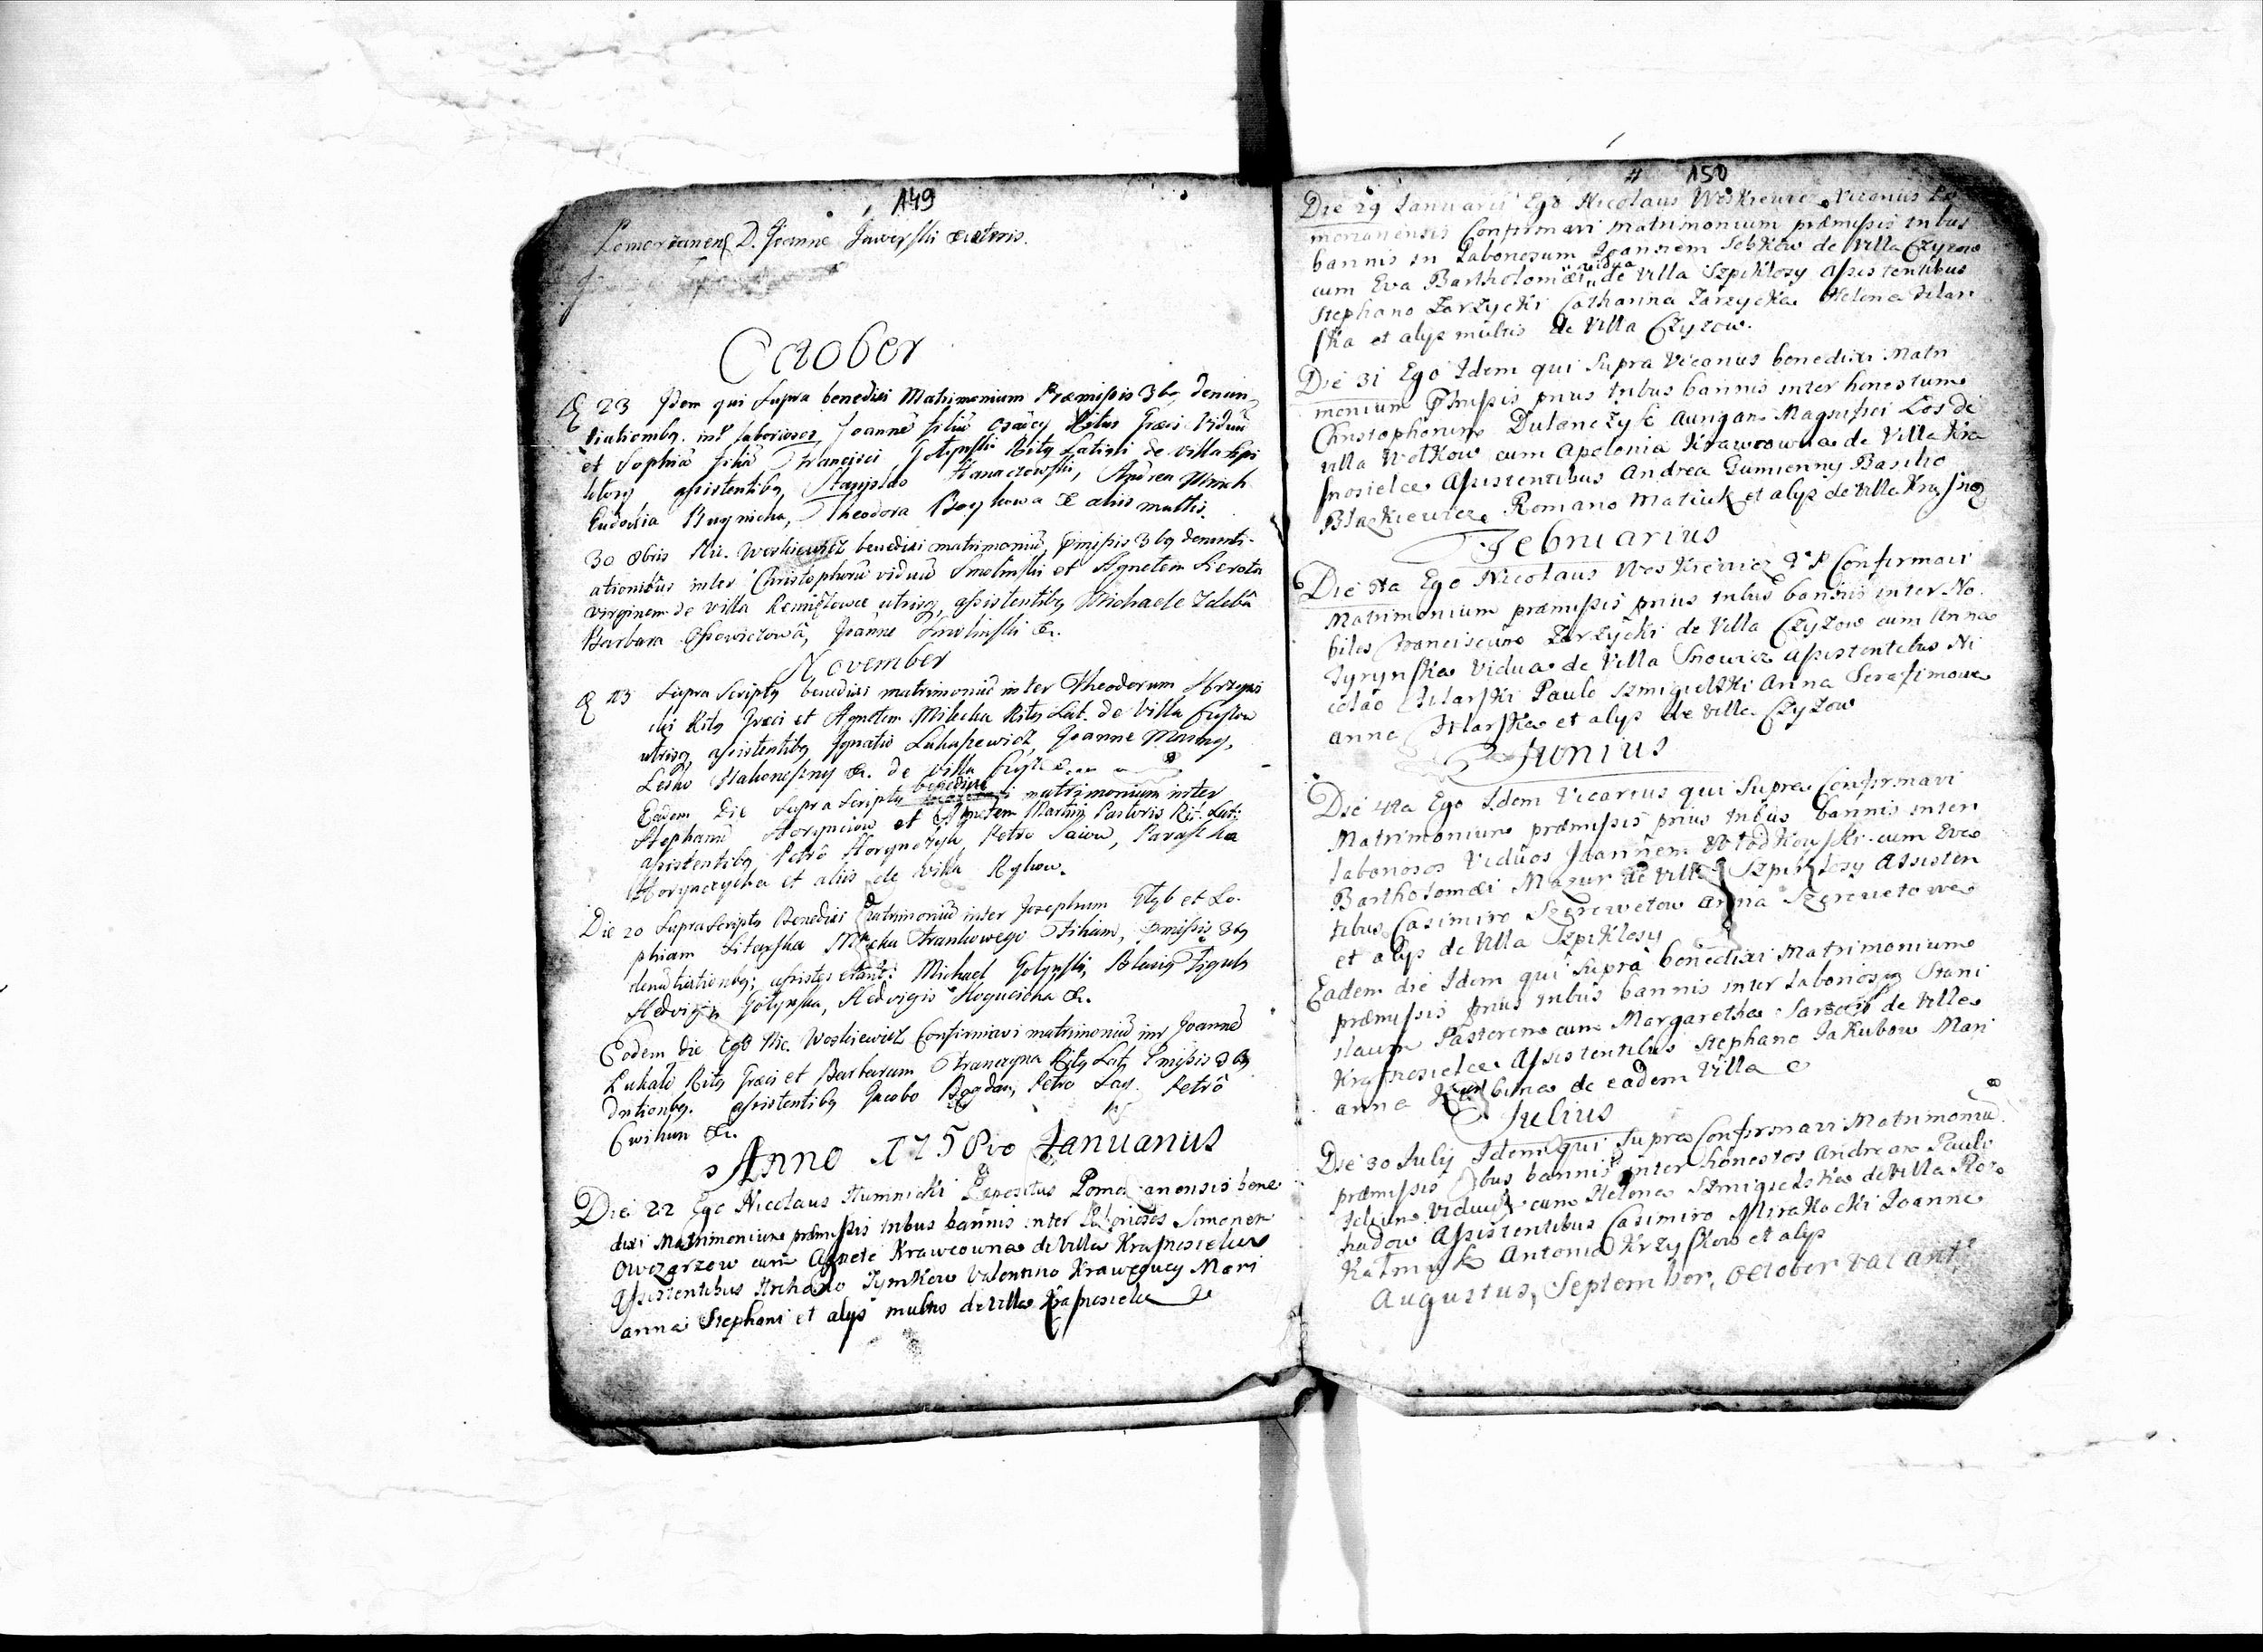 149
Pomorzanen D. Joanne Jaworski & ceteris.
October
D 23 Idem qui supra benedixi Matrimonium Præmissis 3bg denun
tiationibg. int laboriosos Joannē filiū Ritus Græci Viduū
et Sophiā filiā Francisci Gołynski Ritg Latini de villa Szpi
kłosy, assistentibg Stanislao Hanaczowski, Andrea
Eudoxia Theodora Boykowa & aliis multis.
30 8bris Nic. Woskiewicz benedixi matrimoniū, pmissis 3bg denunti-
ationibus inter Christophorū viduū Smolinski et Agnetem Sierota
virginem de villa Remizowce utrisq, assistentibg Michaele
Barbara Joanne Smolinski &.
November
D 23 Supra Scriptg benedixi matrimoniū inter Theodorum
Ritg Græci et Agnetem Milecka Ritg Lat. de Villa
utrisq, assistentibg Ignatio Lukasiewicz, Joanne
Lesko &. de villa
benedixi
Eadem Die Supra Scriptg matrimonium inter
Stephanū et Agnetem Martini Pastoris Rit. Lati
assistentibg Petrô Horynczyk, Petro Saiow, Paraska
Horynczycha et aliis de villa Rykow.
Die 20 SupraScriptg Benedixi matrimoniū inter Josephum Głyb et So-
phiam Frankowego Filiam, pmissis 3bg
denūtiationibg; Michael Gołynski, Blasig
Hedvigis Gołynska, Hedvigis &.
Eodem die Ego Nic. Woskiewicz Confirmavi matrimoniū int Joannē
Lukasz Ritg Græci et Barbaram Ritg Lat. Pmissis 3bg
dntionbg. assistentibg Jacobo Bogdan, Petro Petrô
Cwihun &.
Anno 1758vo Januarius
Die 22 Ego Nicolaus Humnicki Præpositus Pomorzanensis bene
dixi Matrimonium præmissis tribus bannis inter Laboriosos Simonem
Owczarzow cum Agnete Krawcowna de Villa Krasnosielce
Assistentibus Michaelo Tymkow Valentino Mari
anna Stephani et alys multis de Villa Krasnosielce
150
Die 29 Januarii Ego Nicolaus Woskiewicz Vicarius Po
moranensis Confirmavi matrimonium præmissis tribus
bannis in Laboriosum Joannem Sobkow de Villa Czyzow
vidua
cum Eva Bartholomæi de Villa Szpikłosy Assistentibus
Stephano Zarzycki Catharina Zarzycka Helena Hilar
ska et alys multis de Villa Czyzow.
Die 31 Ego Idem qui Supra Vicarius benedixi Matri
monium pmissis prius tribus bannis inter honestum
Christophorum Dulenczyk Magnifici Los de
Villa Wołkow cum Apolonia Krawcowna de Villa Kra
snosielce Assistentibus Andrea Gumienny Basilio
Błazkiewicz Romano Matiuk et alys de Villa Krasnoz
Februarius
Die 5ta Ego Nicolaus Woskiewicz V P Confirmavi
Matrimonium præmissis prius tribus bannis inter No
biles Franciscum Zarzycki de Villa Czyzow cum Anna
Tyrynska Vidua de Villa Snowicz assistentibus Ni
colao Hilarski Paulo Szmigielski Anna Serafinowa
anna Hilarska et alys de villa Czyzow
Junius
Die 4ta Ego Idem Vicarius qui Supra Confirmavi
Matrimonium præmissis prius tribus bannis inter
Laboriosos Viduos Joannem Włodkowski cum Eva
Bartholomæi Mazur de Villa Szpikłosy Assisten
tibus Casimiro Szerewetow anna Szerewetowa
et alys de Villa Szpikłosy
Eadem die Idem qui Supra benedixi Matrimonium
præmissis prius tribus bannis inter Laboriosg Stani
slaum Pastorem cum Margaretha de Villa
Krasnosielce Assistentibus Stephano Jakubow Mari
anna de eadem Villa
Julius
Die 30 July Idem qui Supra Confirmavi Matrimoniū
præmissis bannis inter honestos Andream Pauli
Viduū cum Helena Szmigielska de Villa Roz
hadow Assistentibus Casimiro Mirakocki Joanne
Antonio Krzyskow et alys
Augustus, September, October vacant